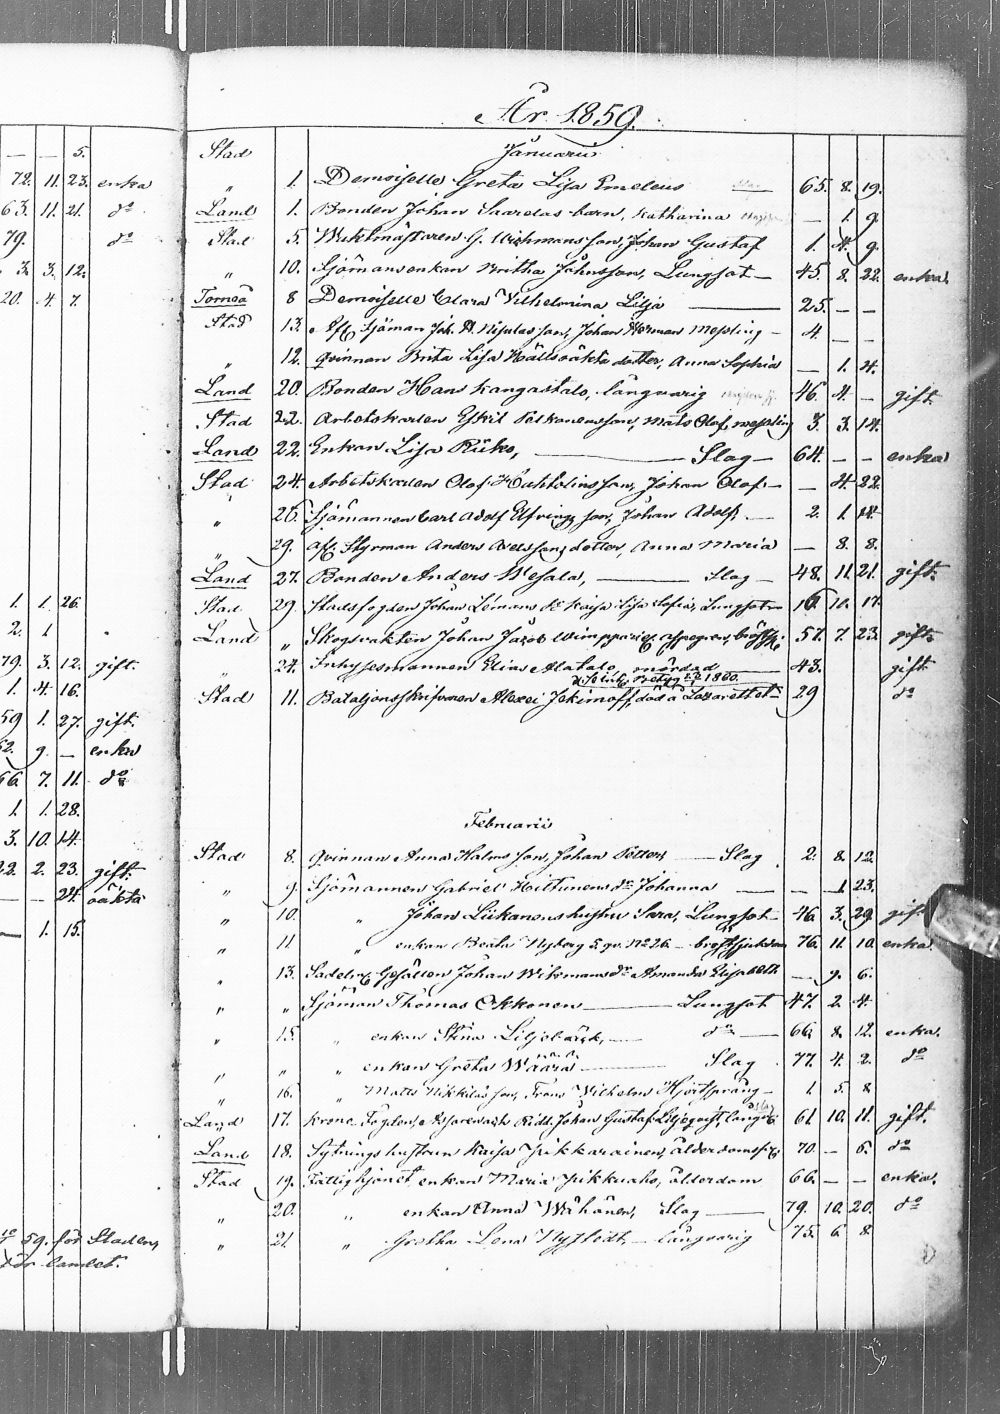 — — 5.
72. 11. 23. enka
63. 11. 21. do
79. do
3. 3. 12.
20. 4. 7.
1. 1. 26.
2. 1
79. 3. 12. gift.
1. 4. 16.
59 1. 27. gift.
62. 9. — enka
66. 7. 11. do
1. 1. 28.
3. 10. 14.
22. 2. 23. gift.
— — 24. oäkta
— 1. 15.
59. för Staden,
för landet.
År 1859.
Stad Januarii
„ 1. Demoiselle Greta Lisa Emeleus 65. 8. 19.
Land 1. Bonden Johan Saarelas barn, Katharina — 1. 9.
Stad 5. Waktmästaren G. Wichmans son, Johan Gustaf 1. 4. 9.
„ 10. Sjömansenkan Britha Johnsson, Lungsot — 45. 8. 22. enka.
Torneå 8 Demoiselle Clara Vilhelmina Lilja — 25. — —
Stad 13. Sjöman Joh. H. Nikulas son, Johan Herman Messling — 4. — —
„ 12. Qvinnan Brita Lisa Hälls oäkta dotter, Anna Sophia — 1. 4.
Land 20. Bonden Han Kangastalo, långvarig 46. 4. — gift.
Stad 22. Arbetskarlen Eskil Pelkonens son, Mats Olof, messling 3. 3. 14.
Land 22. Enkan Lisa Rüko, — Slag — 64. — — enka
Stad 24. Arbetskarlen Olof son, Johan Olof — — 4. 22.
„ 26. Sjömannen Carl Adolf Elfvings son, Johan Adolf. — 2. 1. 14.
„ 29. afl. Styrman Anders Axelssons dotter, Anna Maria — 8. 8.
Land 27. Bonden Anders Wesala, — Slag — 48. 11. 21. gift.
Stad 29. Stadsfogden Johan Lemans Kajsa Lisa Sofia, Lungsot — 16. 10. 17.
Land „ Skogvakten Johan Jacob 57. 7. 23. gift.
„ 24. Inhysesmannen Elias Alatalo, mördad — 43. gift.
betyg 1860.
Stad 11. Bataljonsskrifvaren Alexei Jekimoff, död å Lazarettet — 29 do
Februarii
Stad 8. Qvinnan Anna Halms son, Johan Petter, — Slag 2. 8. 12.
„ 9. Sjömannen Gabriel Hiltunens dr Johanna — — 1. 23.
„ 10. „ Johan Liikanens hustru Sara, Lungsot — 46. 3. 29. gift.
„ 11. „ enkan Beata Nyberg 5 qv. No 26. — bröstsjukdom 76. 11. 10. enka.
„ 13. Sadelm. Gesällen Johan Wikmans dr Amanda Elisabeth — 9. 6.
„ „ Sjöman Thomas Okkonen — Lungsot 47. 2. 4.
„ 15. „ enkan Stina Liljebäck, — do — 66. 8. 12. enka.
„ „ „ enkan Greta Waara — Slag 77. 4. 2. do
„ 16. „ Matts Nikkilas son, Frans Vilhelm Hjertsprång — 1 5. 8
Land 17. Krono Fogden, Assessor och Ridd. Johan Gustaf Liljeqvist, långv. 61. 10. 11. gift.
Land 18. Sytnings hustrun Kaisa Jukkarainen, ålderdoms 70. — 6. do
Stad 19. Fattighjonet enkan Maria Jukkuaho, ålderdom 66. — — enka.
„ 20. „ enkan Anna Wähänen, Slag — 79. 10. 20. do
„ 21. „ Gretha Lena Nystedt, — långvarig 75. 6. 8.